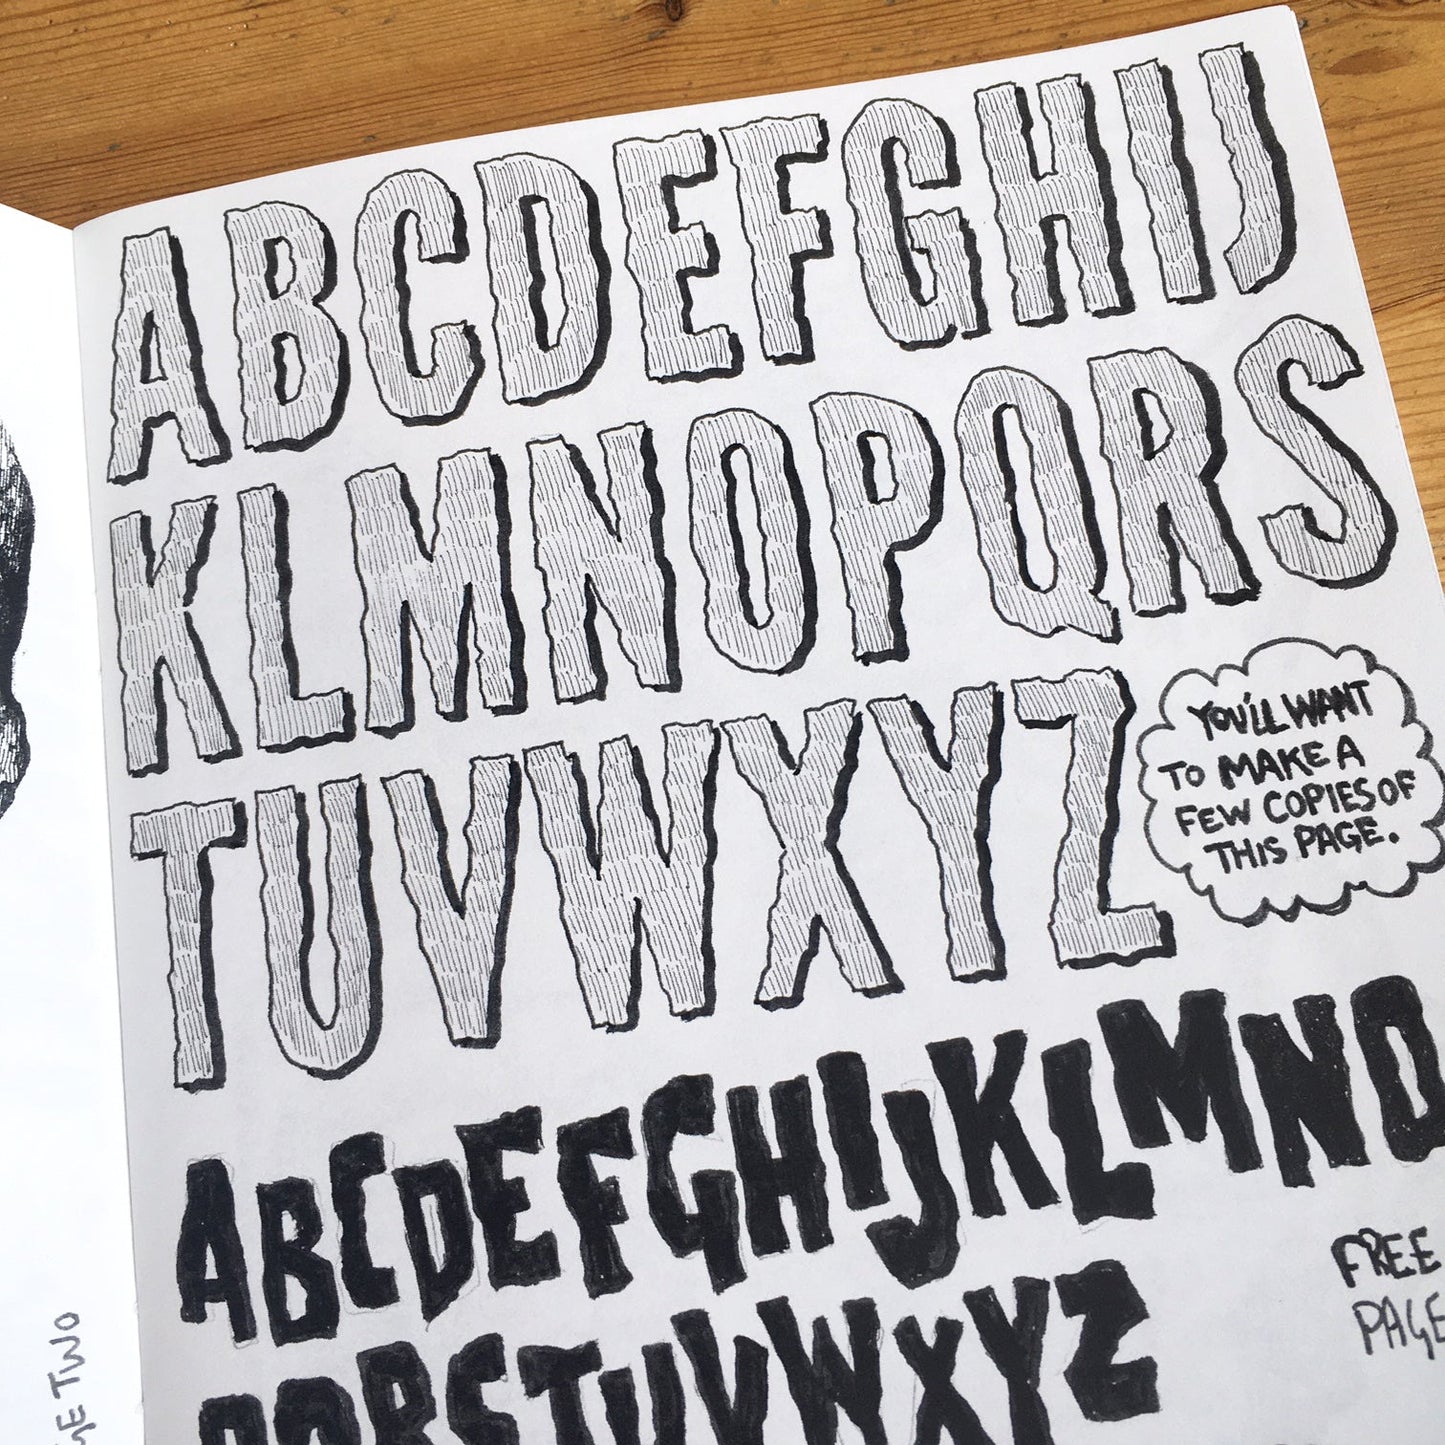 ABCDEFGHIJ
KLMNOPQRS
TUVWXYZ
YOU'LL WANT
TO MAKE A
FEW COPIES OF
THIS PAGE.
ABCDEFGHIJKLMNO
PQRSTUVWXYZ
FREE
PAGE
GE TWO